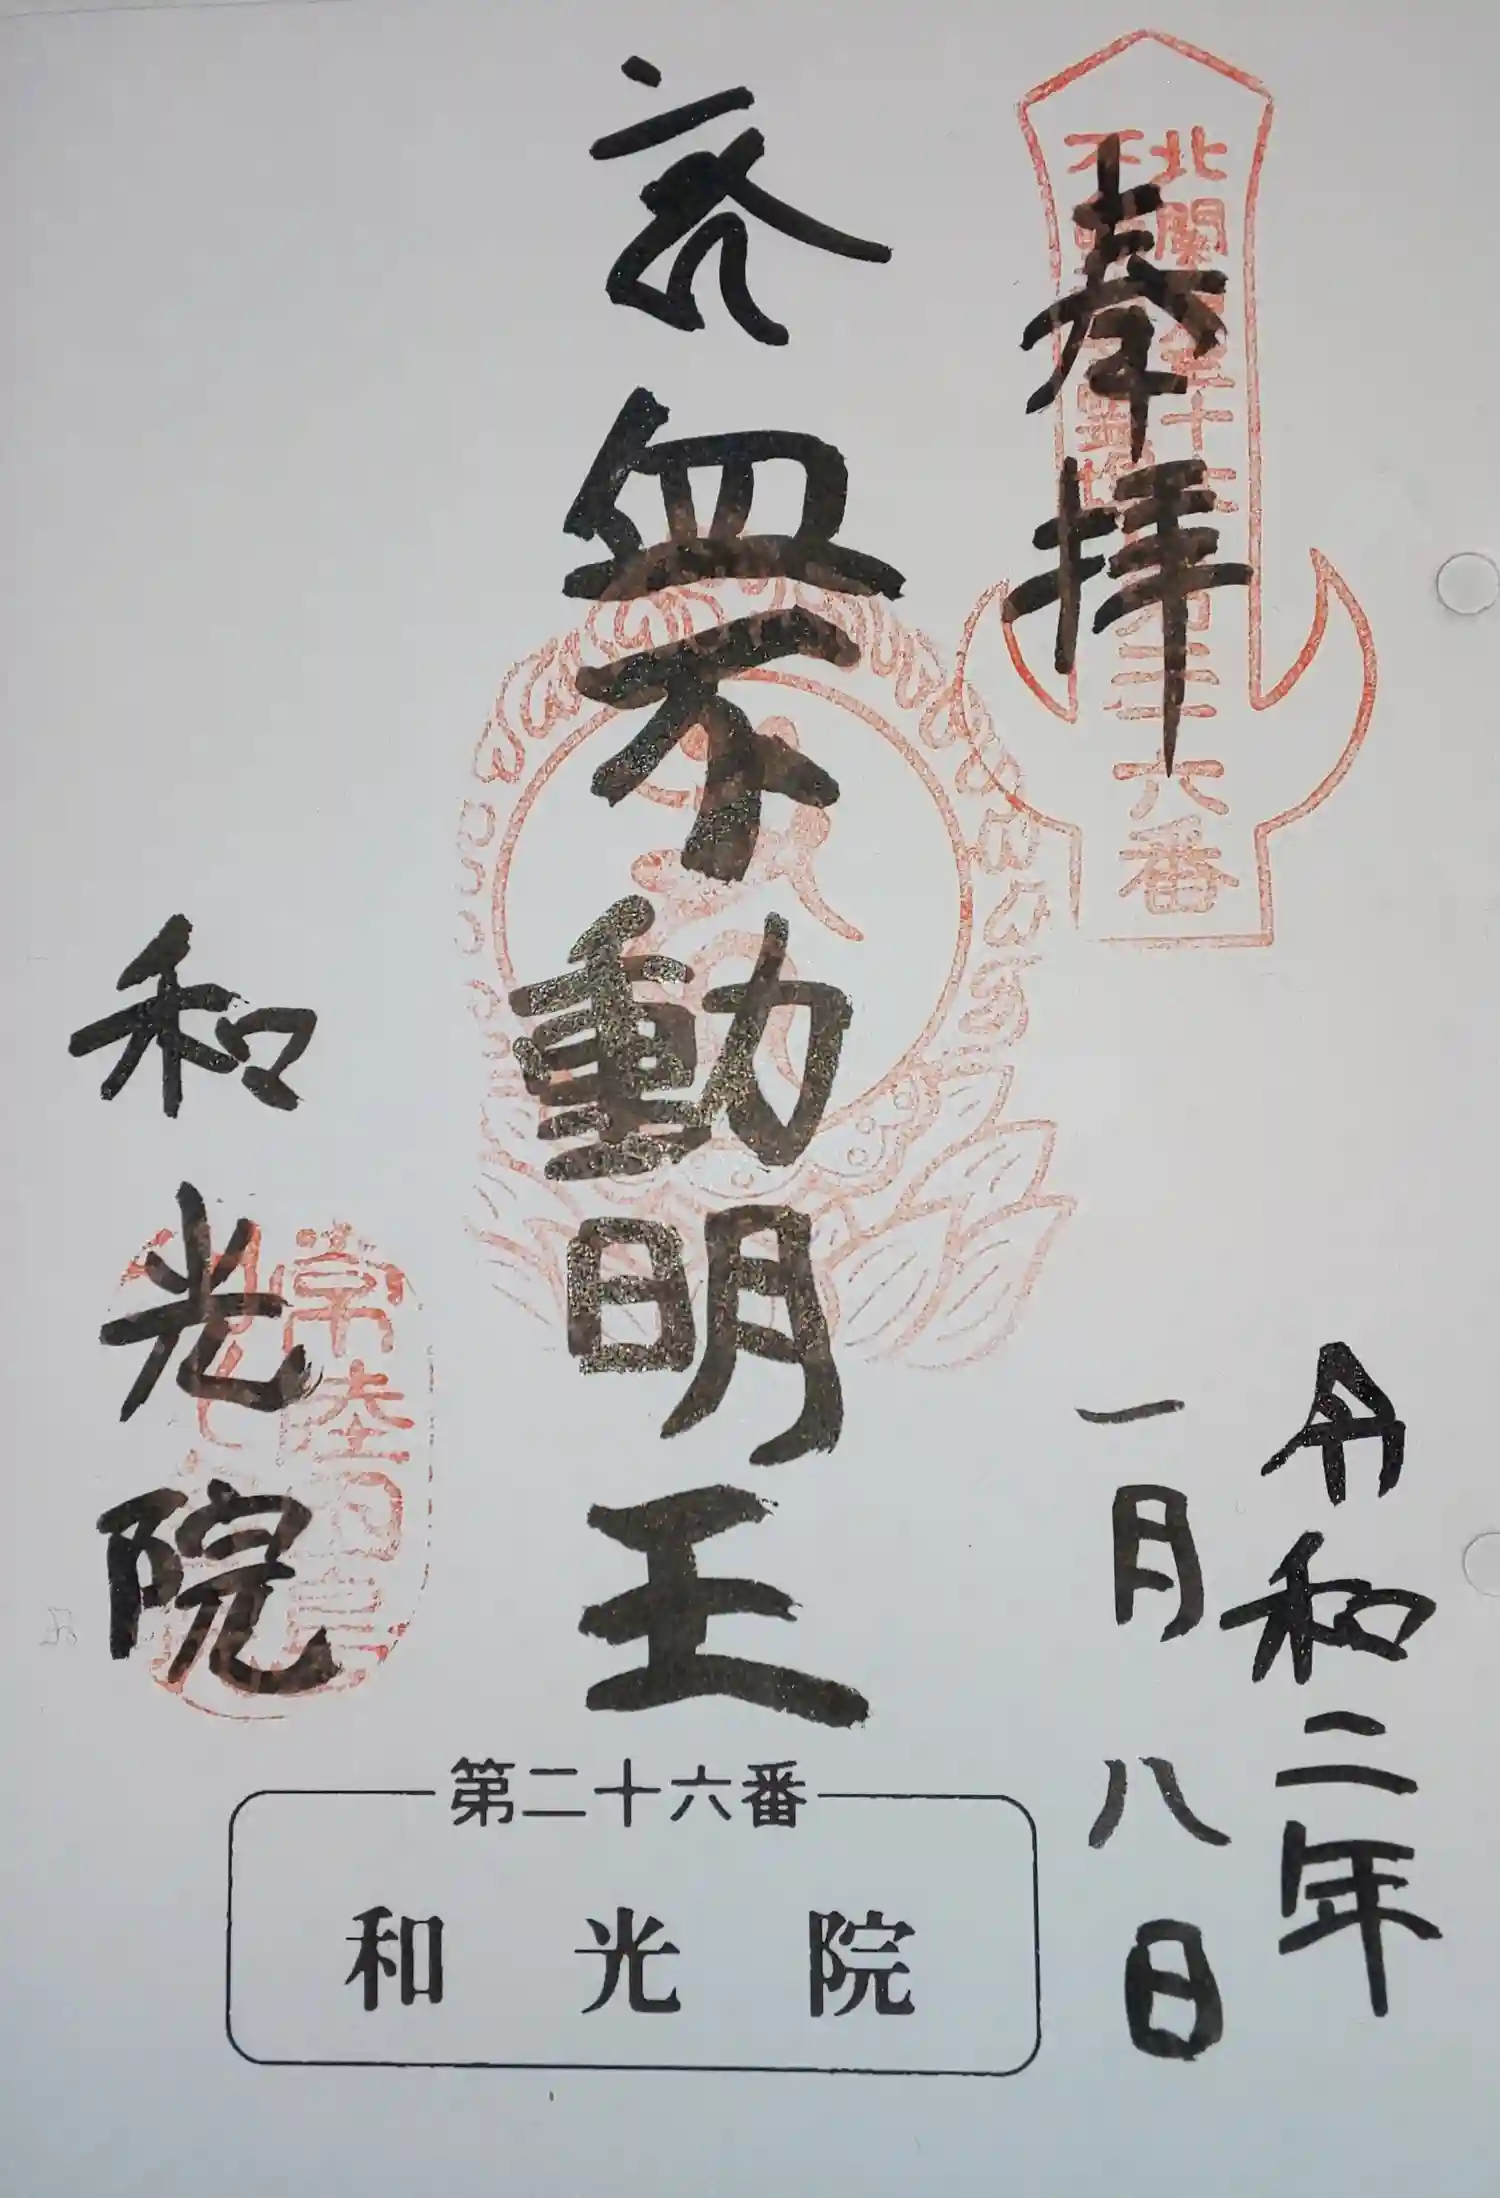 奉拝
北関東三十六
不動尊霊場
第二十六番
南無不動明王
和光院
常陸
令和二年
一月八日
第二十六番
和光院